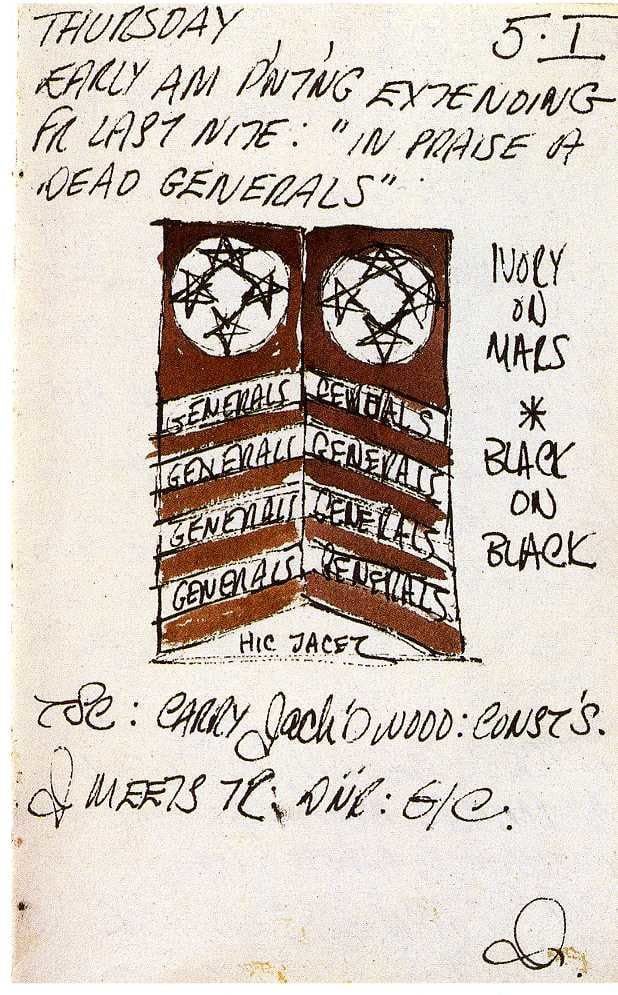 THURSDAY 5·I
EARLY AM P'NT'NG EXTENDING
FR LAST NITE: "IN PRAISE OF
DEAD GENERALS"
IVORY
ON
MARS
*
BLACK
ON
BLACK
GENERALS GENERALS
GENERALS GENERALS
GENERALS GENERALS
GENERALS GENERALS
HIC JACET
CARRY Jack'D WOOD: CONST'S.
MEETS TR: DNR: G/C.